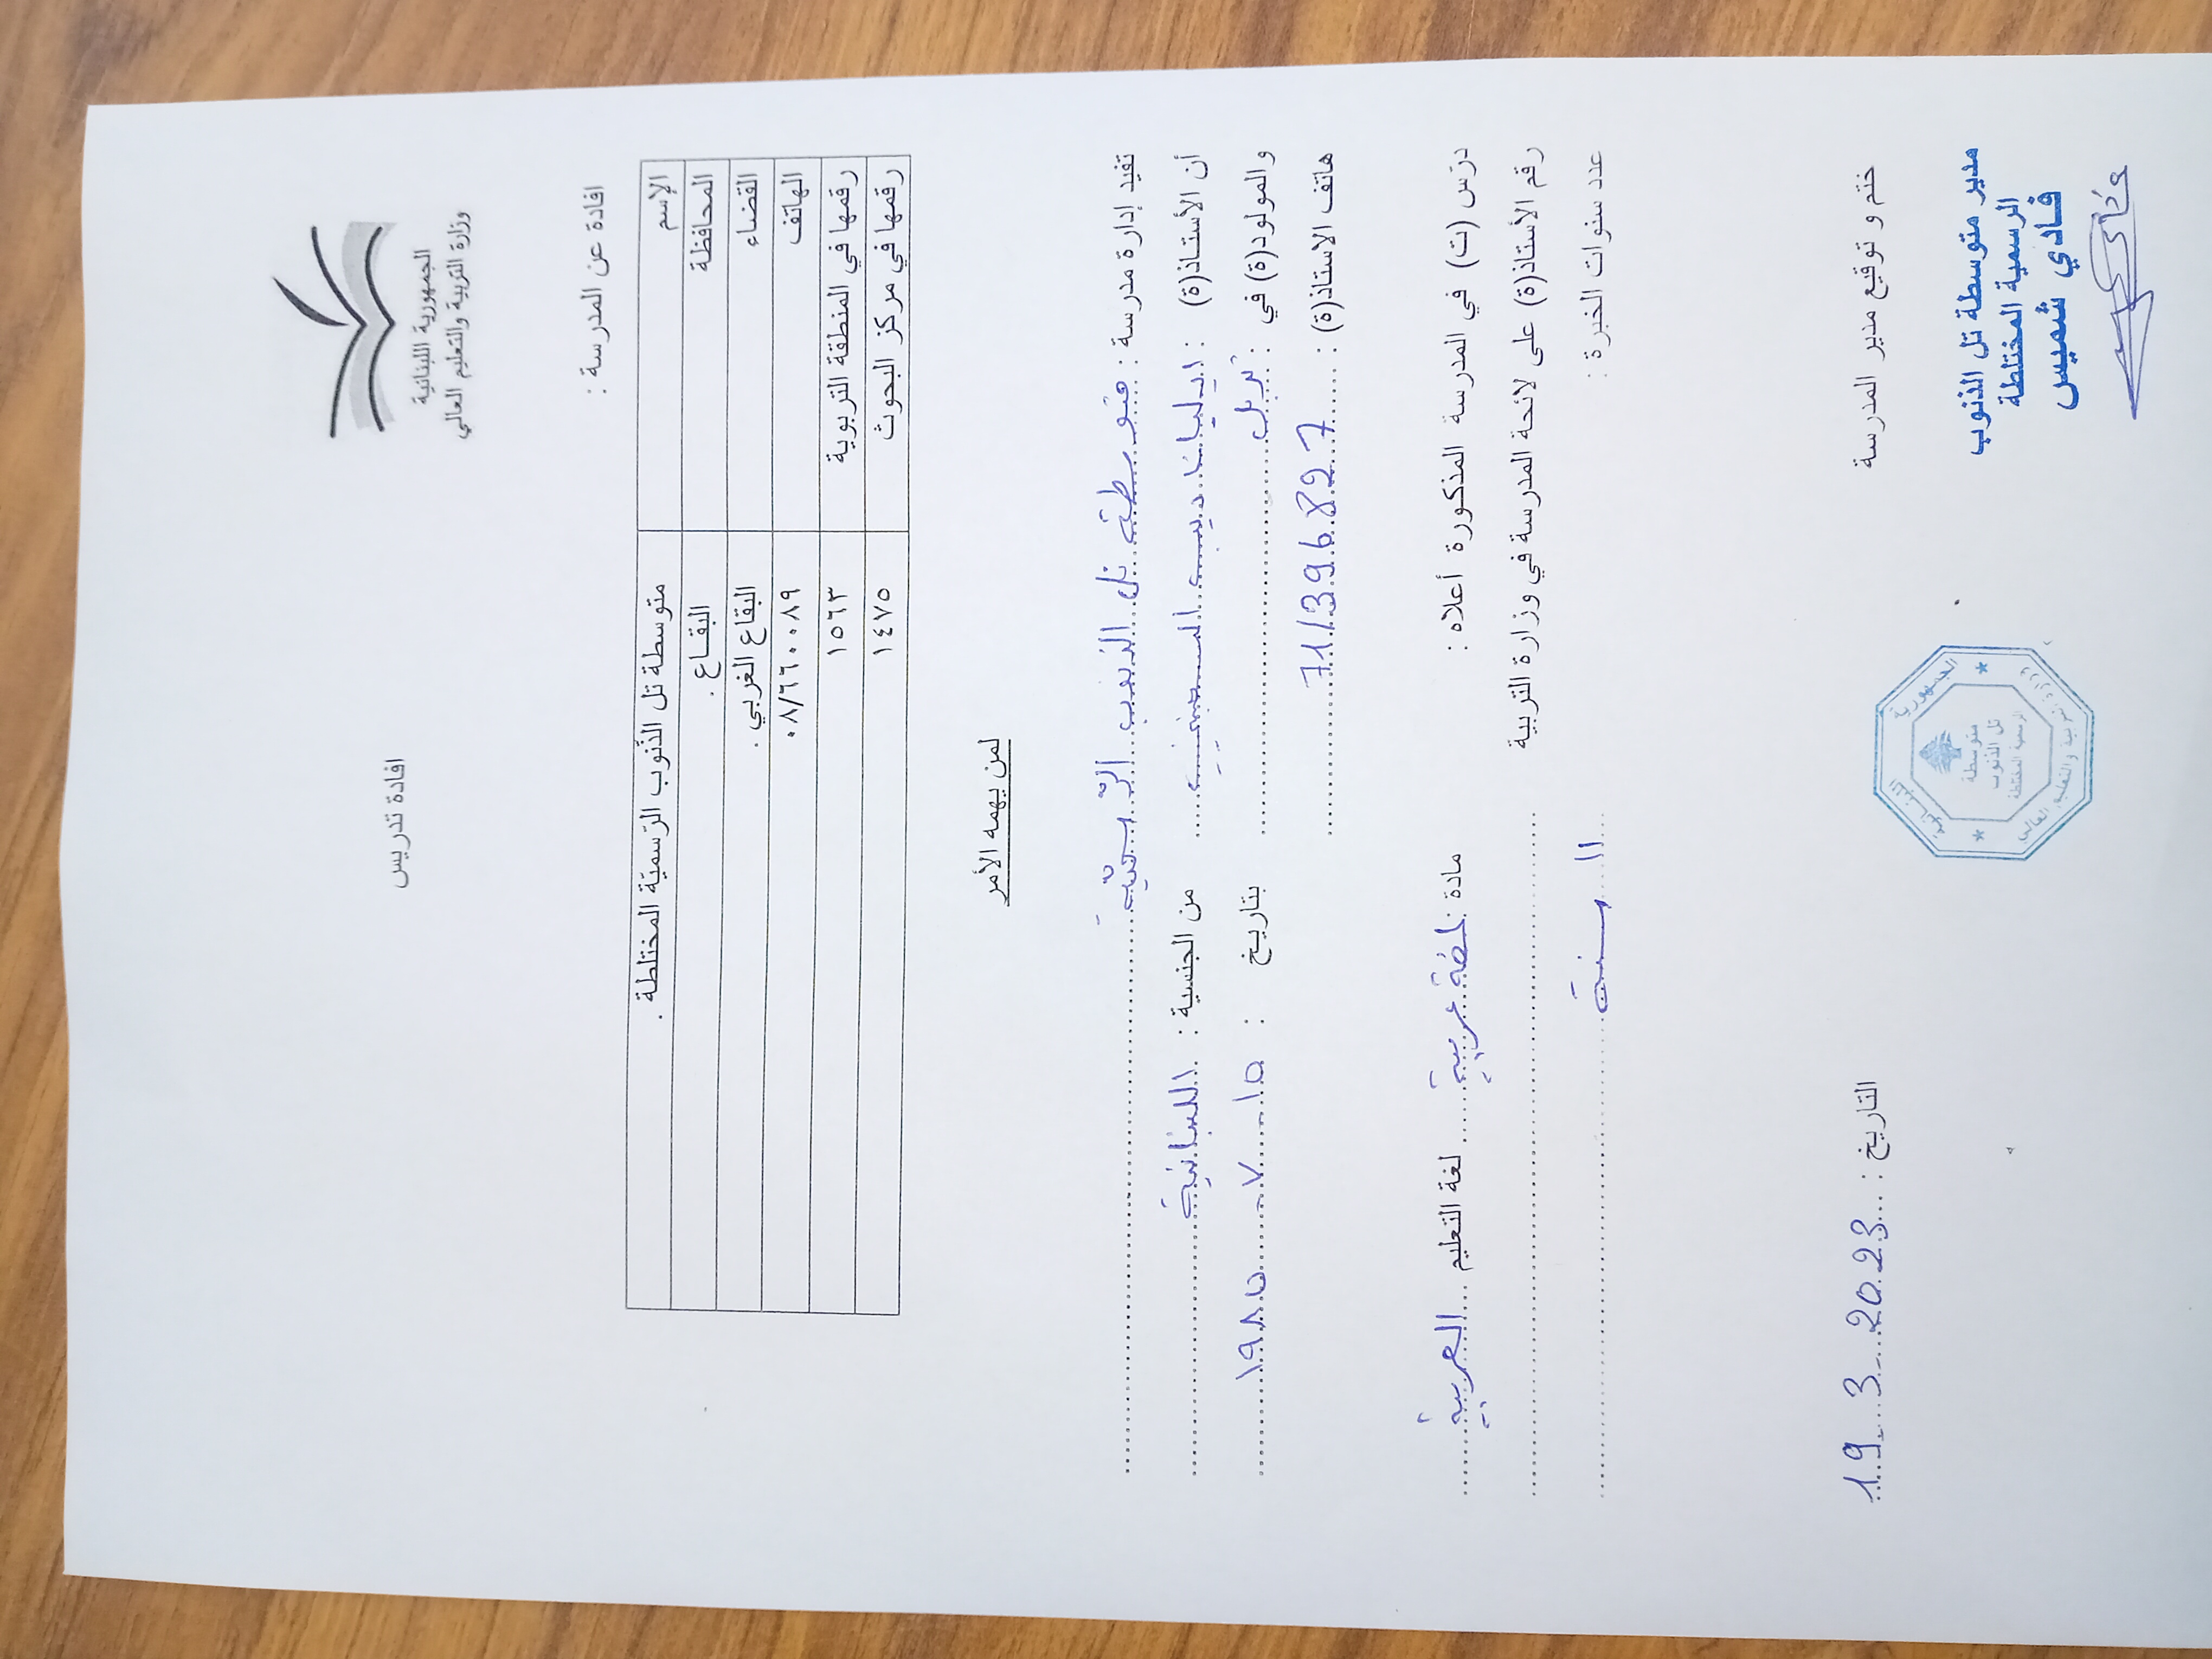 الجمهورية اللبنانية
وزارة التربية والتعليم العالي
افادة تدريس
افادة عن المدرسة :
الإسم متوسطة تل الذّنوب الرّسميّة المختلطة .
المحافظة البقـاع .
القضاء البقاع الغربي .
الهاتف ٠٨/٦٦٠٠٨٩
رقمها في المنطقة التربوية ١٥٦٣
رقمها في مركز البحوث ١٤٧٥
لمن يهمه الأمر
تفيد إدارة مدرسة : متوسطة تل الذنوب الرّسميّة
أن الأستاذ(ة) : ايليانا ديب من الجنسية : اللبنانية
والمولود(ة) في : بتاريخ : ١٥ - ٧ - ١٩٨٥
هاتف الاستاذ(ة) : 71/396827
درّس (ت) في المدرسة المذكورة أعلاه : مادة : لغة عربية لغة التعليم العربية
رقم الأستاذ(ة) على لائحة المدرسة في وزارة التربية
عدد سنوات الخبرة : ١١ سنة
ختم و توقيع مدير المدرسة
التاريخ : 19 - 3 - 2023
مدير متوسطة تل الذنوب
الرسمية المختلطة
فـادي شميس
الجمهورية اللبنانية
وزارة التربية والتعليم العالي
متوسطة
تل الذنوب
الرسمية المختلطة